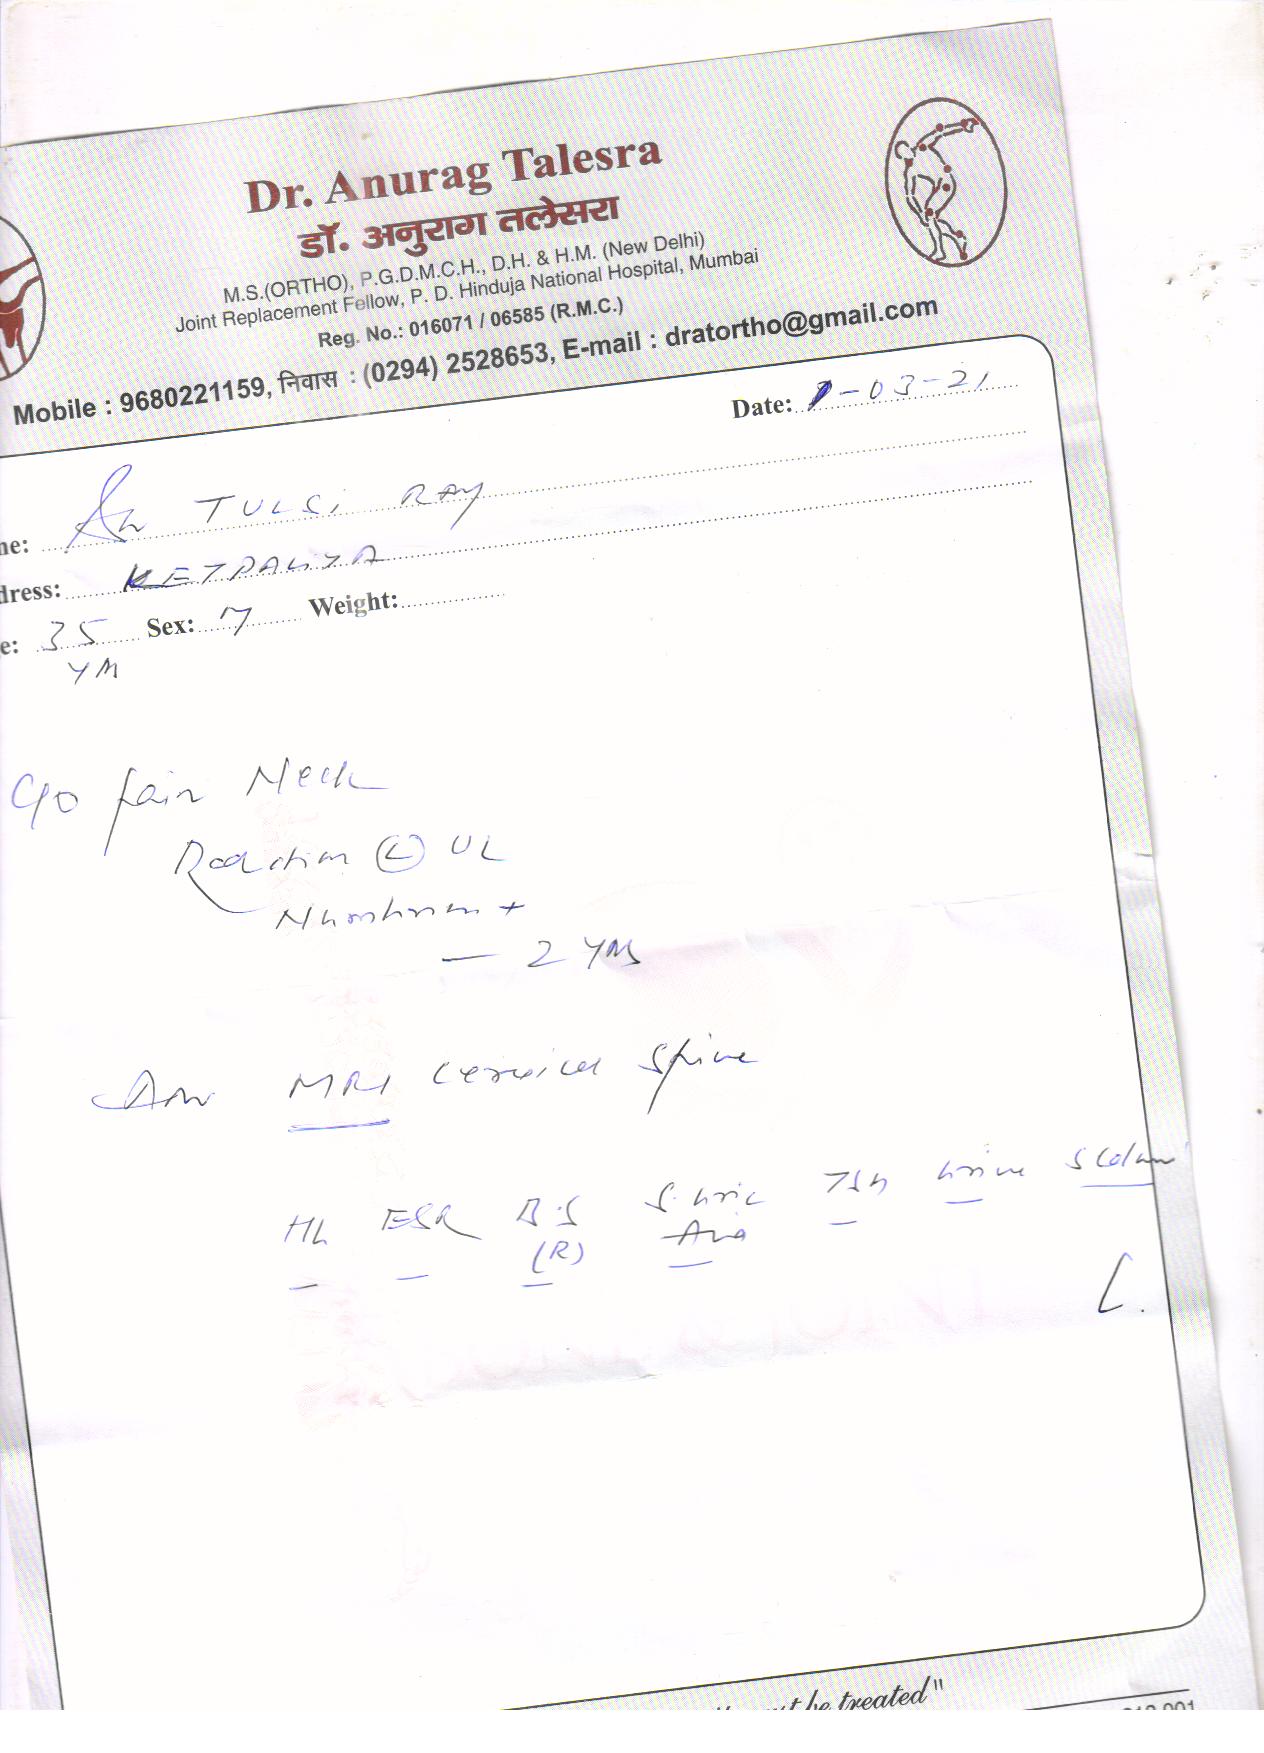 Dr. Anurag Talesra
डॉ. अनुराग तलेसरा
M.S.(ORTHO), P.G.D.M.C.H., D.H. & H.M. (New Delhi)
Joint Replacement Fellow, P. D. Hinduja National Hospital, Mumbai
Reg. No.: 016071 / 06585 (R.M.C.)
Mobile : 9680221159, निवास : (0294) 2528653, E-mail : dratortho@gmail.com
Date: 1-03-21
me: TULSI RAM
dress: KETPALIYA
e: 35 Sex: M Weight:
YRS
C/o Pain Neck
Radiation (L) UL
Numbness +
— 2 YRS
Adv MRI Cervical Spine
Hb ESR B.S S. Uric TSH Urine S Calcium
(R) Acid
be treated"